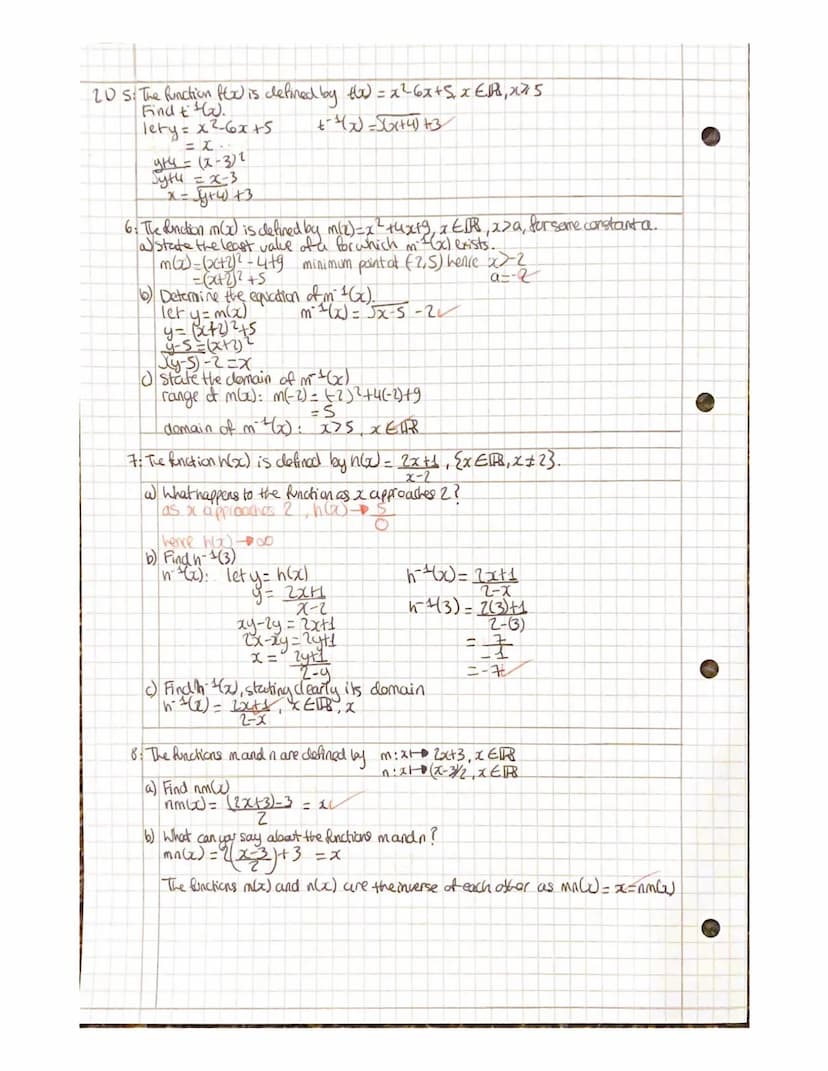 2D 5: The function t(x) is defined by t(x) = x²-6x+5, x ∈ ℝ, x ≥ 5
Find t⁻¹(x).
let y = x²-6x+5 t⁻¹(x) = √(x+4) +3 ✓
= x
y+4 = (x-3)²
√y+4 = x-3
x = √(y+4) +3
6: The function m(x) is defined by m(x) = x²+4x+9, x ∈ ℝ, x>a, for some constant a.
a) State the least value of a for which m⁻¹(x) exists.
m(x) = (x+2)² - 4+9 minimum point at (-2,5) hence x>-2
= (x+2)² +5 a=-2
b) Determine the equation of m⁻¹(x).
let y = m(x) m⁻¹(x) = √x-5 -2 ✓
y = (x+2)²+5
y-5 = (x+2)²
√(y-5) -2 = x
c) State the domain of m⁻¹(x)
range of m(x): m(-2) = (-2)²+4(-2)+9
= 5
domain of m⁻¹(x): x>5, x ∈ ℝ
7: The function h(x) is defined by h(x) = 2x+1/x-2, {x ∈ ℝ, x ≠ 2}.
a) What happens to the function as x approaches 2?
as x approaches 2, h(x) → 5/0
hence h(x) → ∞
b) Find h⁻¹(3)
h⁻¹(x): let y = h(x) h⁻¹(x) = 2x+1/2-x
y = 2x+1/x-2 h⁻¹(3) = 2(3)+1/2-(3)
xy-2y = 2x+1
2x-xy = 2y+1 = 7/-1
x = 2y+1/2-y = -7 ✓
c) Find h⁻¹(x), stating clearly its domain
h⁻¹(x) = 2x+1/2-x, x ∈ ℝ, x
8: The functions m and n are defined by m: x ↦ 2x+3, x ∈ ℝ
n: x ↦ (x-3)/2, x ∈ ℝ
a) Find nm(x)
nm(x) = (2x+3)-3/2 = x ✓
b) What can you say about the functions m and n?
mn(x) = 2(x-3/2)+3 = x
The functions m(x) and n(x) are the inverse of each other as mn(x) = x = nm(x)